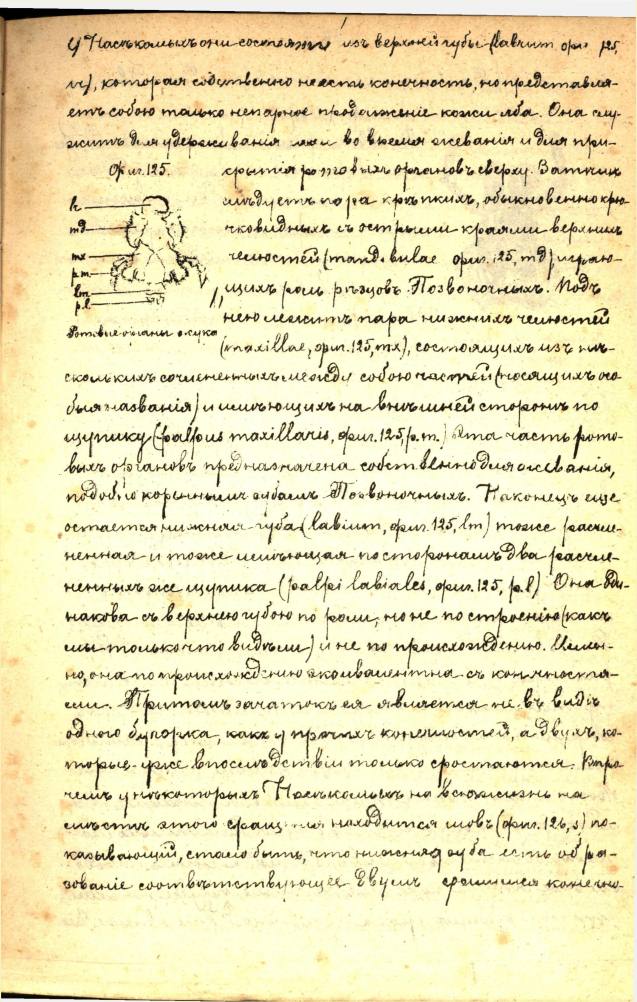 У Насѣкомыхъ они состоятъ изъ верхней губы (labrum, фиг. 125,
которая собственно не есть конечность, но представля-
етъ собою только непарное продолженіе кожи лба. Она слу-
житъ для удерживанія пищи во время жеванія и для при-
крытія ротовыхъ органовъ сверху. Затѣмъ
Фиг. 125.
слѣдуетъ пара крѣпкихъ, обыкновенно крю-
чковидныхъ съ острыми краями верхнихъ
челюстей (mandibulae фиг. 125, md) играю-
щихъ роль рѣзцовъ Позвоночныхъ. Подъ
нею лежитъ пара нижнихъ челюстей
(maxillae, фиг. 125, mx), состоящихъ изъ нѣ-
h
md
mx
p.m
lm
p.l
Ротовые органы жука
сколькихъ сочлененныхъ между собою частей (носящихъ осо-
быя названія) и имѣющихъ на внѣшней сторонѣ по
щупику (palpus maxillaris, фиг. 125, p.m.) Эта часть рото-
выхъ органовъ предназначена собственно для жеванія,
подобно кореннымъ зубамъ Позвоночныхъ. Наконецъ еще
остается нижняя губа (labium, фиг. 125, lm) тоже расчле-
ненная и тоже имѣющая по сторонамъ два расчле-
ненныхъ же щупика (palpi labiales, фиг. 125, p.l) Она оди-
накова съ верхнею губою по роли, но не по строенію (какъ
мы только что видѣли) и не по происхожденію. Имен-
но, она по происхожденію эквивалентна съ конечностя-
ми. Притомъ зачатокъ ея является не въ видѣ
одного бугорка, какъ у прочихъ конечностей, а двухъ, ко-
торые уже впослѣдствіи только сростаются. Впро-
чемъ у нѣкоторыхъ Насѣкомыхъ на всю жизнь на
мѣстѣ этого сращенія находится шовъ (фиг. 126, s) по-
казывающій, стало быть, что нижняя губа есть обра-
зованіе соотвѣтствующее двумъ конечно-